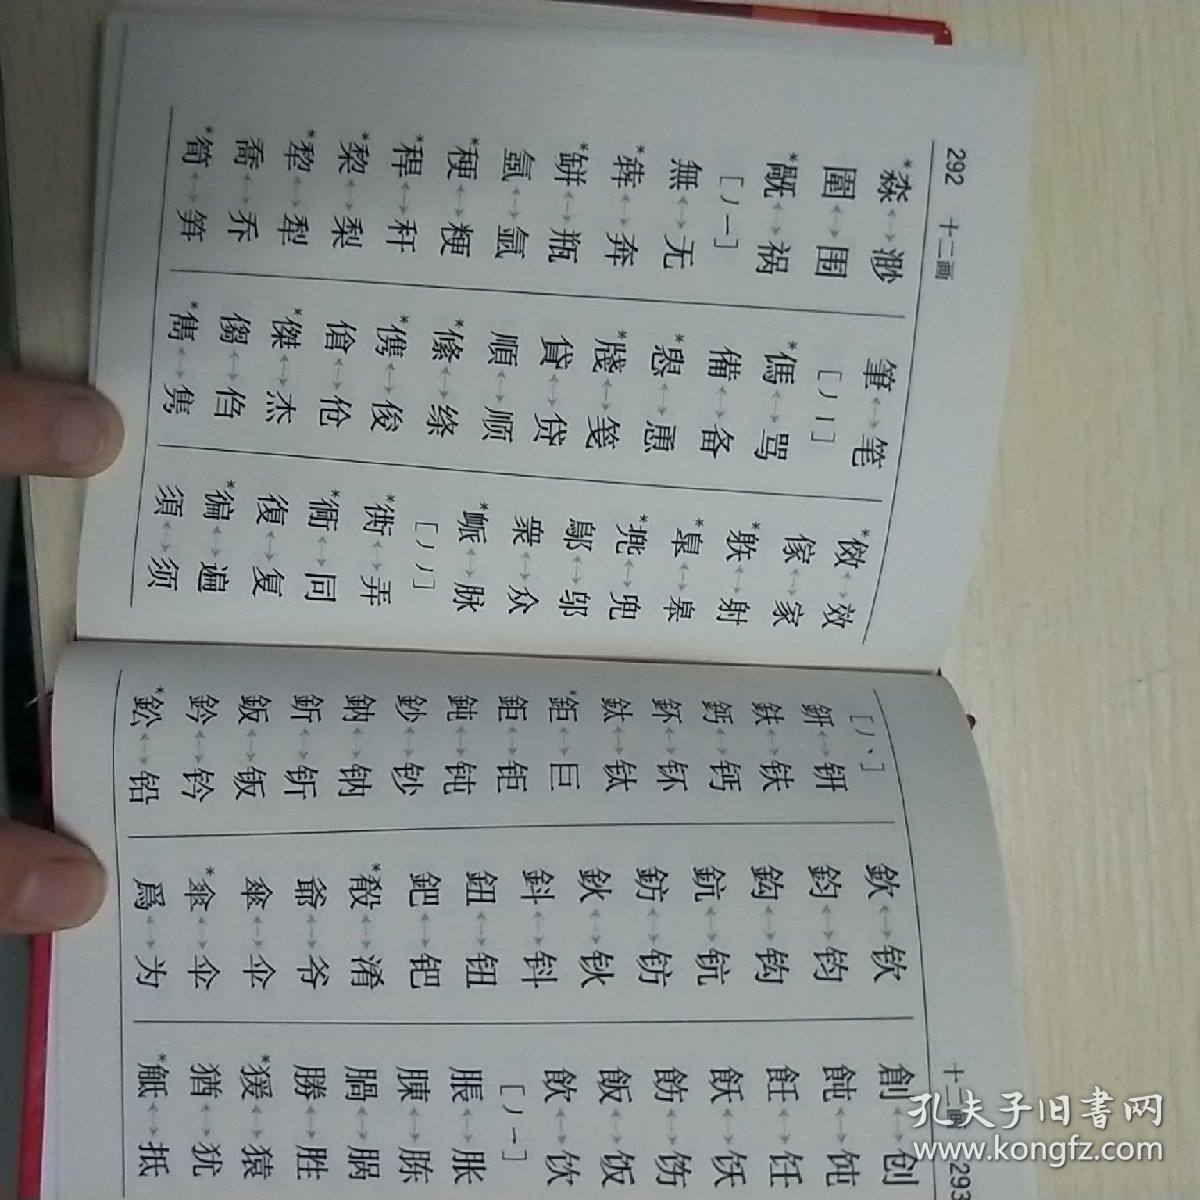 292 十二画
*淼↔渺
圍↔围
*𥚃↔祸
[丿一]
無↔无
*犇↔奔
*缾↔瓶
氬↔氩
*稉↔粳
*稈↔秆
*棃↔梨
*犂↔犁
喬↔乔
*筍↔笋
筆↔笔
[丿丨]
*傌↔骂
備↔备
*恿
*牋↔笺
貸↔贷
順↔顺
*絛↔绦
*儁↔俊
傖↔伧
*傑↔杰
傷
*雋↔隽
*傚↔效
傢↔家
*躲↔射
*皋
*兠↔兜
鄔↔邬
衆↔众
*衇↔脉
[丿丿]
*衖↔弄
*衕↔同
復↔复
*徧↔遍
須↔须
[丿丶]
鈃↔钘
鈇↔𫓧
鈣↔钙
鈈↔钚
鈦↔钛
*鉅↔巨
鉅↔钜
鈍↔钝
鈔↔钞
鈉↔钠
釿↔𬬱
鈑↔钣
鈐↔钤
*鈆↔铅
欽↔钦
鈞↔钧
鈎↔钩
鈧↔钪
鈁↔钫
鈥↔钬
鈄↔钭
鈕↔钮
鈀↔钯
*殽↔淆
爺↔爷
傘↔伞
爲↔为
十二画 293
創↔创
飩↔饨
飪↔饪
飫↔饫
飭↔饬
飯↔饭
飲↔饮
[丿一]
脹↔胀
腖↔胨
腡↔脶
勝↔胜
*猨↔猿
猶↔犹
*觝↔抵
孔夫子旧书网
www.kongfz.com